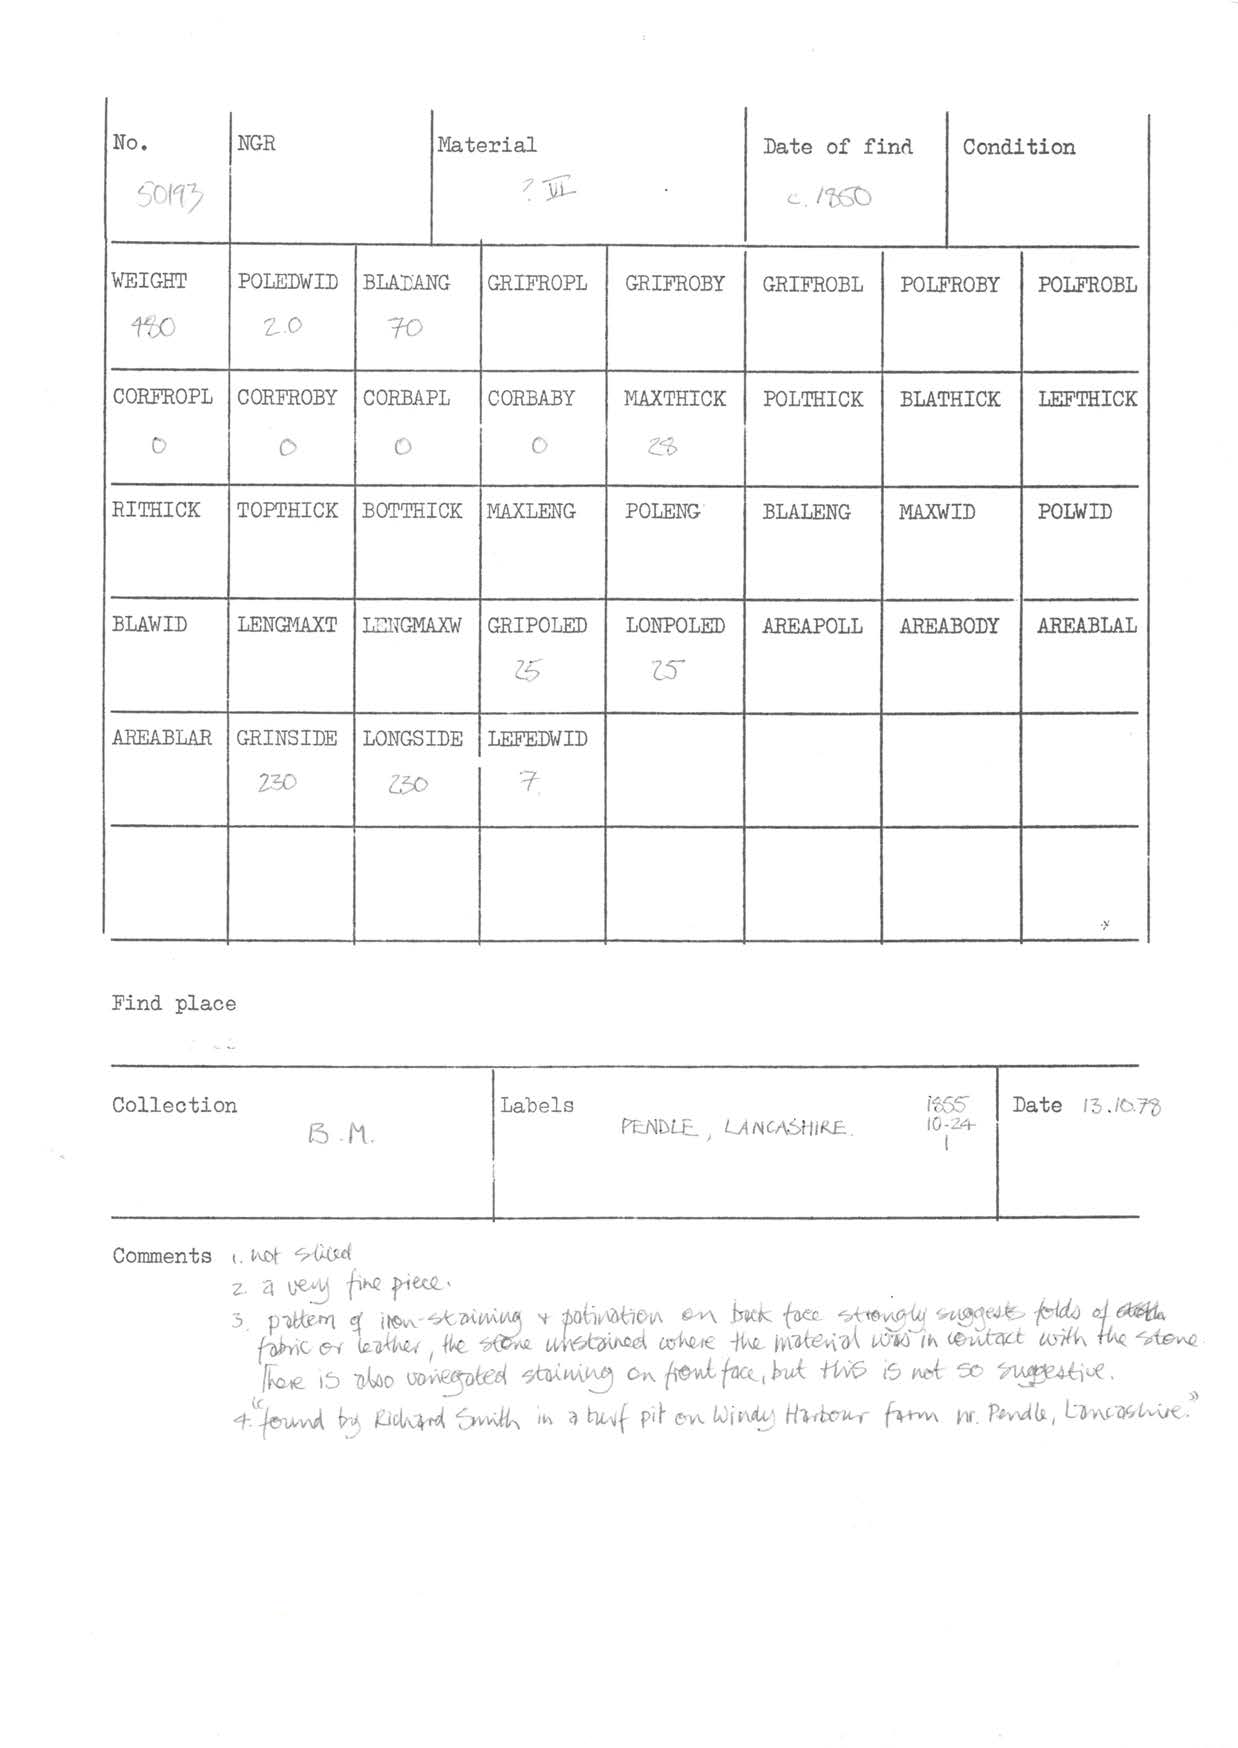 No. NGR Material Date of find Condition
50193 ? VI c. 1850
WEIGHT POLEDWID BLADANG GRIFROPL GRIFROBY GRIFROBL POLFROBY POLFROBL
480 2.0 70
CORFROPL CORFROBY CORBAPL CORBABY MAXTHICK POLTHICK BLATHICK LEFTHICK
0 0 0 0 28
RITHICK TOPTHICK BOTTHICK MAXLENG POLENG BLALENG MAXWID POLWID
BLAWID LENGMAXT LENGMAXW GRIPOLED LONPOLED AREAPOLL AREABODY AREABLAL
25 25
AREABLAR GRINSIDE LONGSIDE LEFEDWID
230 230 7
Find place
Collection Labels 1855 Date 13.10.78
B.M. PENDLE, LANCASHIRE. 10-24
1
Comments 1. not sliced
2. a very fine piece.
3. pattern of iron-staining + patination on back face strongly suggests folds of
fabric or leather, the stone unstained where the material was in contact with the stone.
There is also variegated staining on front face, but this is not so suggestive.
4. "found by Richard Smith in a turf pit on Windy Harbour farm nr. Pendle, Lancashire."